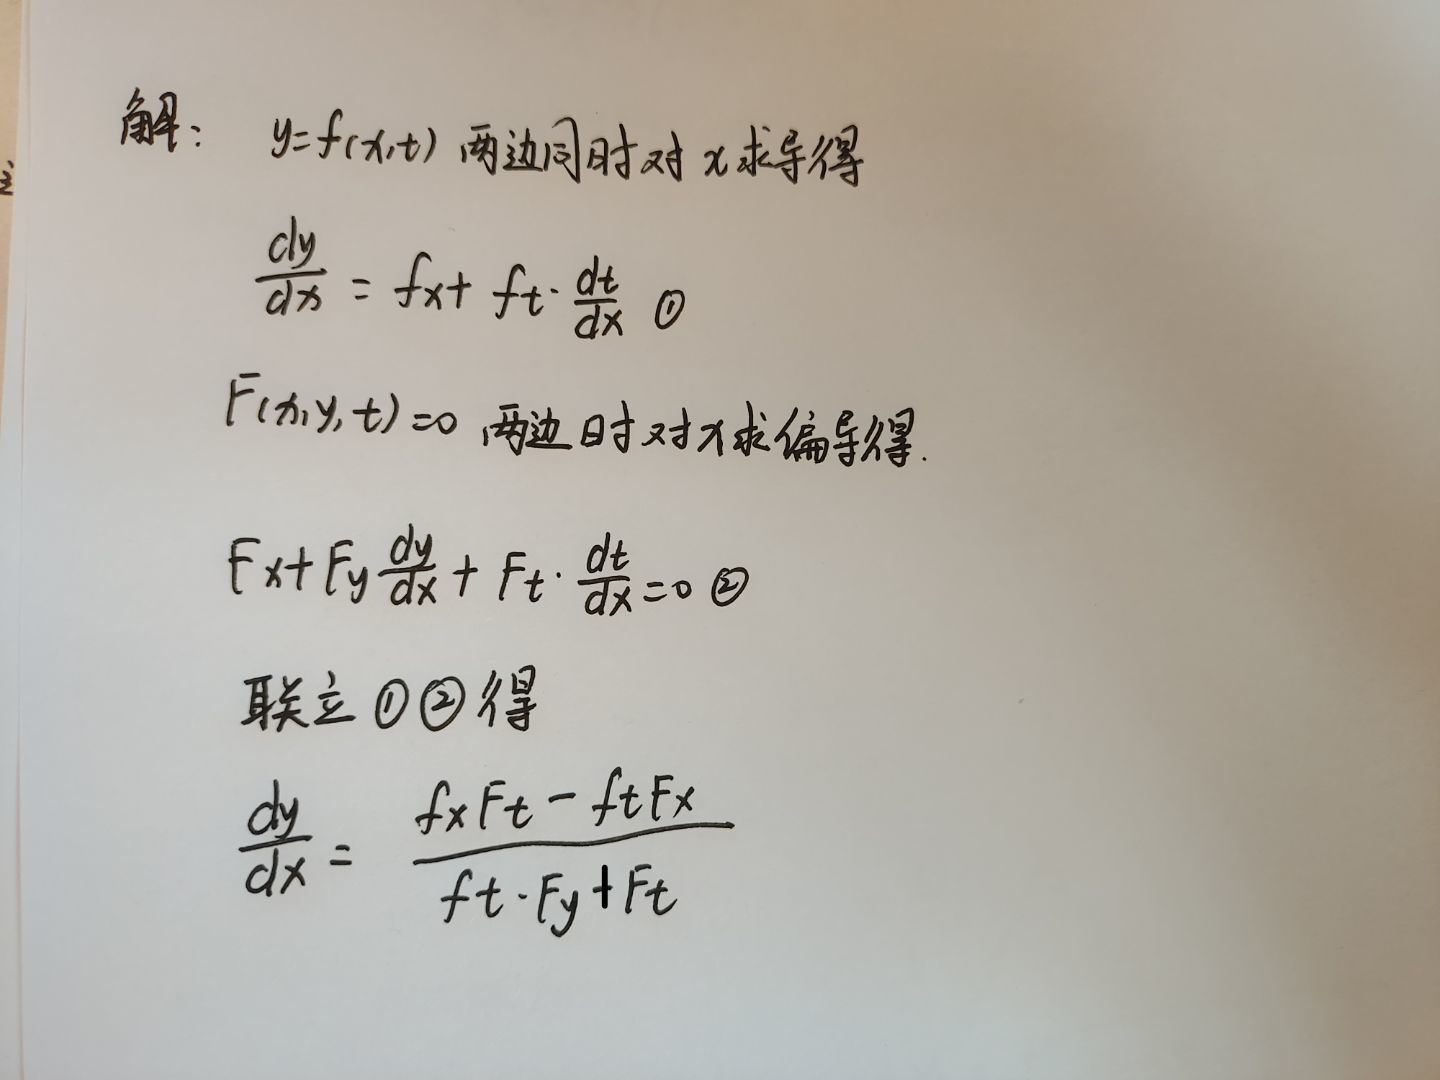 解： y=f(x,t) 两边同时对x求导得
dy/dx = fx+ ft·dt/dx ①
F(x,y,t)=0 两边时对x求偏导得.
Fx+Fy dy/dx + Ft·dt/dx=0 ②
联立①②得
dy/dx = (fxFt-ftFx)/(ft·Fy+Ft)